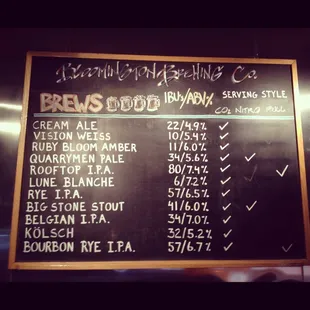 Bloomington Brewing Co.
BREWS IBUs/ABV% SERVING STYLE
CO2 NITRO
CREAM ALE 22/4.9% ✓
VISION WEISS 10/5.4% ✓
RUBY BLOOM AMBER 11/6.0% ✓
QUARRYMEN PALE 34/5.6% ✓ ✓
ROOFTOP I.P.A. 80/7.4% ✓ ✓
LUNE BLANCHE 6/7.2% ✓ ✓
RYE I.P.A. 57/6.5% ✓
BIG STONE STOUT 41/6.0% ✓ ✓
BELGIAN I.P.A. 34/7.0% ✓
KÖLSCH 32/5.2% ✓
BOURBON RYE I.P.A. 57/6.7% ✓ ✓